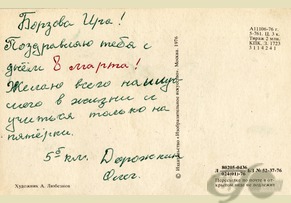 Борзова Ира!
Поздравляю тебя с
днём 8 марта!
Желаю всего наилуч
шего в жизни и
учиться только на
пятёрки.
5б кл. Дорожкин
Олег.
Художник А. Любезнов
© Издательство «Изобразительное искусство». Москва. 1976
А11106-76 г.
5-761. Ц. 3 к.
Тираж 2 млн.
КПК. З. 1723
3118241
80205-0436
024(01)-76
БЗ № 52-37-76
Пересылке по почте в от-
крытом виде не подлежит